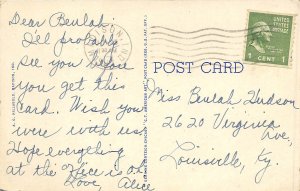 Dear Beulah:
I'll probably
see you before
you get this
card. Wish you
were with us.
Hope everything
at the office is ok.
Love, Alice
POST CARD
Miss Beulah Hudson
2620 Virginia
Ave.
Louisville, Ky.
UNITED STATES
POSTAGE
1 CENT 1